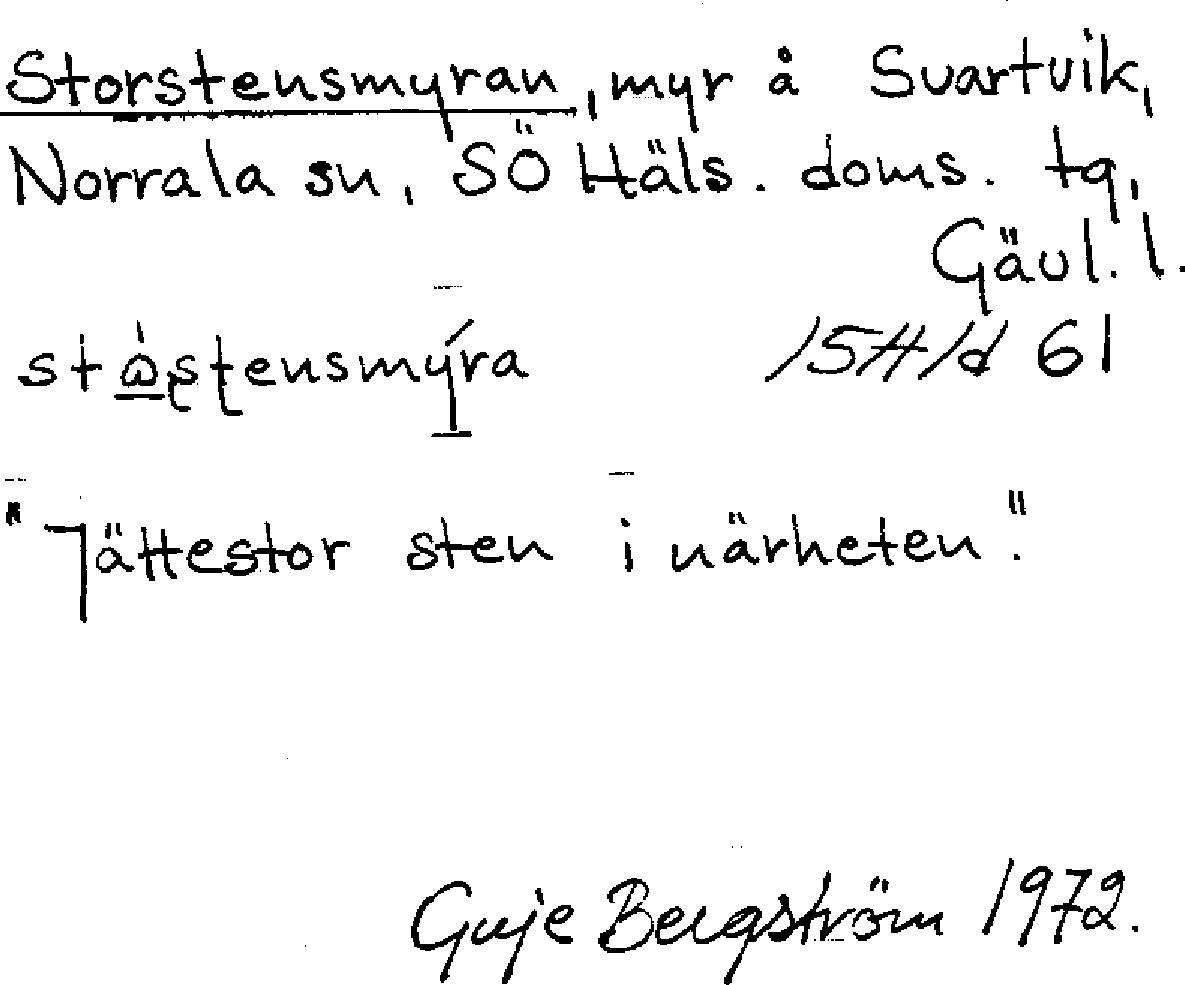 Storstensmyran, myr å Svartvik,
Norrala sn, SÖ Häls. doms. tg,
Gävl. l.
stὼ̲ʂʈensmý̲ra 15H/d 61
"Jättestor sten i närheten."
Guje Bergström 1972.